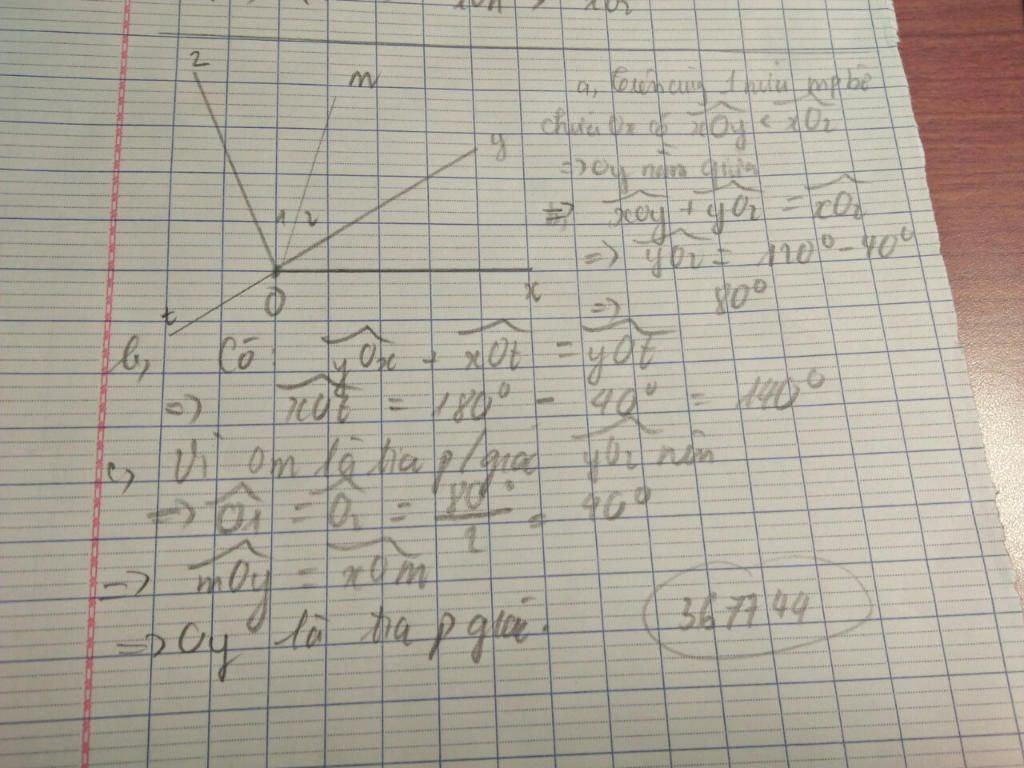 z
m
y
1 2
O
x
t
a, Trên cùng 1 nửa mp bờ
chứa Ox có xOy < xOz
=> Oy nằm giữa
=> xOy + yOz = xOz
=> yOz = 120° - 40°
=> 80°
b, Có: yOx + xOt = yOt
=> xOt = 180° - 40° = 140°
c, Vì Om là tia p/giác yOz nên
=> O1 = O2 = 80°/2 = 40°
=> mOy = xOm
=> Oy là tia p giác.
367744